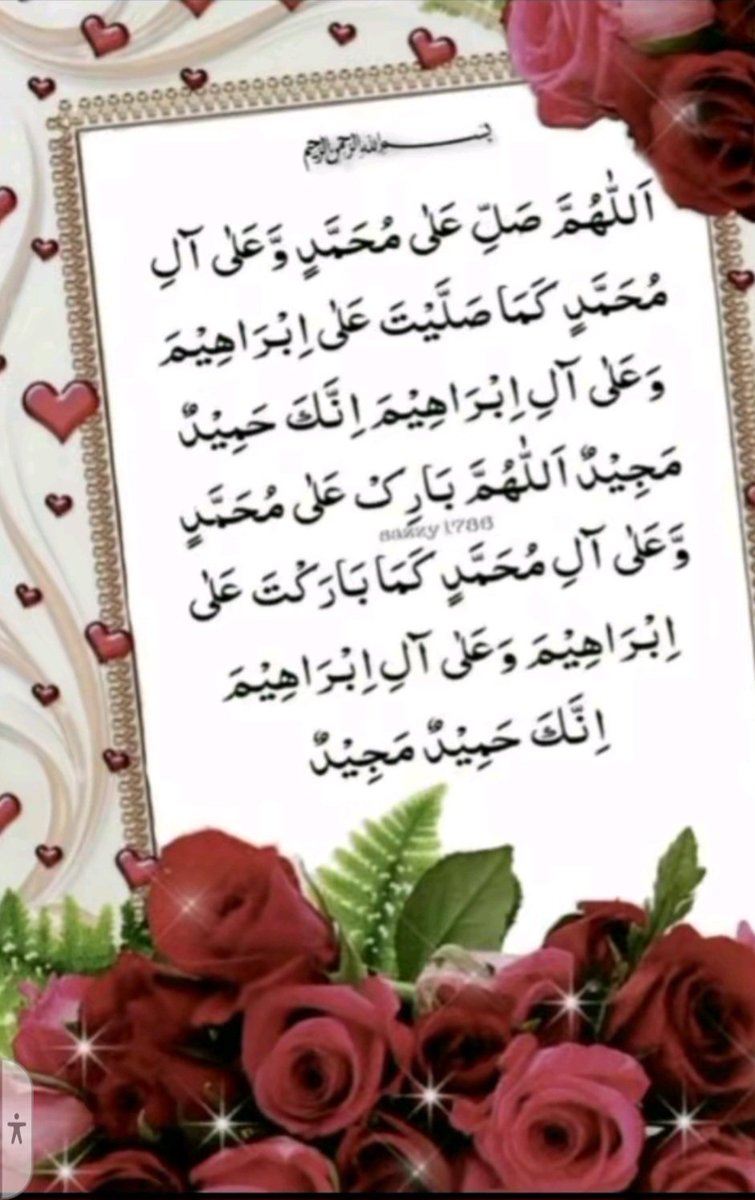 بسم الله الرحمن الرحيم
اَللّٰهُمَّ صَلِّ عَلٰى مُحَمَّدٍ وَّعَلٰى آلِ
مُحَمَّدٍ كَمَا صَلَّيْتَ عَلٰى اِبْرَاهِيْمَ
وَعَلٰى آلِ اِبْرَاهِيْمَ اِنَّكَ حَمِيْدٌ
مَجِيْدٌ اَللّٰهُمَّ بَارِکْ عَلٰى مُحَمَّدٍ
sazzy1786
وَّعَلٰى آلِ مُحَمَّدٍ كَمَا بَارَكْتَ عَلٰى
اِبْرَاهِيْمَ وَعَلٰى آلِ اِبْرَاهِيْمَ
اِنَّكَ حَمِيْدٌ مَجِيْدٌ